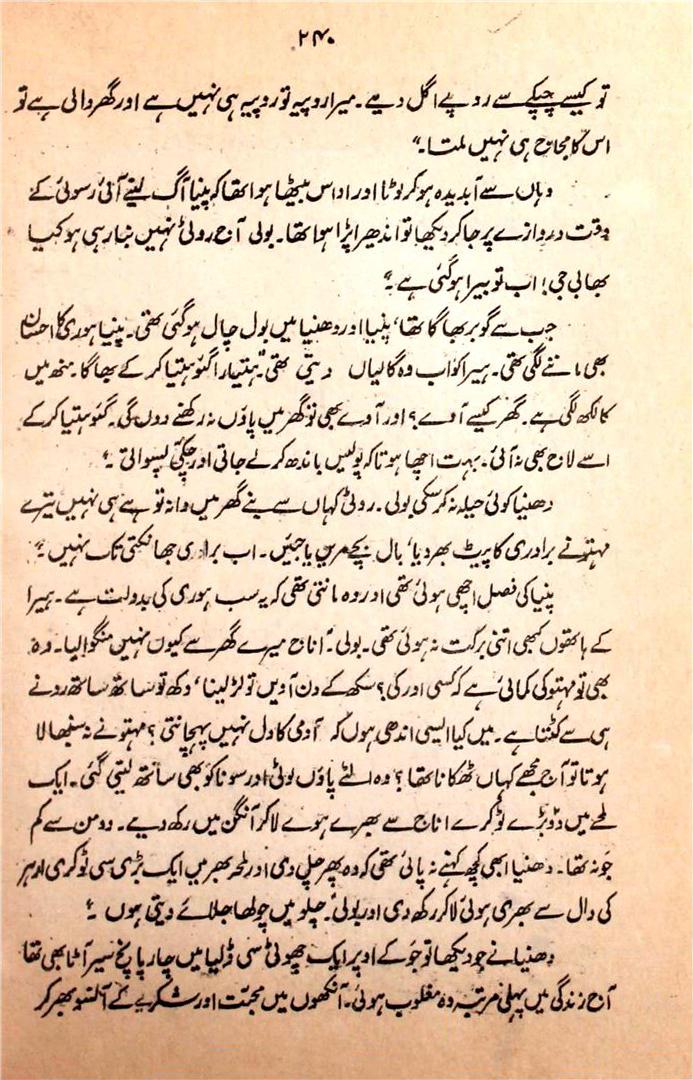 ۲۴۰
تو کیسے چپکے سے روپے اگل دیے۔ میرا روپیہ تو روپیہ ہی نہیں ہے اور گھر والی ہے تو
اس کا مجاج ہی نہیں ملتا۔"
وہاں سے آبدیدہ ہو کر لوٹا اور اداس بیٹھا ہوا تھا کہ پنیا آگ لینے آئی رسوئی کے
وقت دروازے پر جا کر دیکھا تو اندھیرا پڑا ہوا تھا۔ بولی آج روٹی نہیں بنا رہی ہو کیا
بھابی جی! اب تو بیرا ہو گئی ہے۔"
جب سے گوبر بھاگا تھا، پنیا اور دھنیا میں بول چال ہو گئی تھی۔ پنیا ہوری کا احسان
بھی ماننے لگی تھی۔ ہیرا کو اب وہ گالیاں دیتی تھی۔ "ہتیارا گئو ہتیا کر کے بھاگا۔ منھ میں
کالکھ لگی ہے۔ گھر کیسے آوے؟ اور آوے بھی تو گھر میں پاؤں نہ رکھنے دوں گی۔ گئو ہتیا کر کے
اسے لاج بھی نہ آئی۔ بہت اچھا ہوتا کہ پولیس باندھ کر لے جاتی اور چکی پسواتی۔"
دھنیا کوئی حیلہ نہ کر سکی بولی۔ روٹی کہاں سے بنے گھر میں دانہ تو ہے ہی نہیں تیرے
مہتو نے برادری کا پیٹ بھر دیا، بال بچے مریں یا جئیں۔ اب برادری جھانکتی تک نہیں۔"
پنیا کی فصل اچھی ہوئی تھی اور وہ مانتی تھی کہ یہ سب ہوری کی بدولت ہے۔ ہیرا
کے ہاتھوں کبھی اتنی برکت نہ ہوئی تھی۔ بولی۔ "اناج میرے گھر سے کیوں نہیں منگوا لیا۔ وہ
بھی تو مہتو کی کمائی ہے کہ کسی اور کی؟ سکھ کے دن آویں تو لڑ لینا، دکھ تو ساتھ ساتھ رونے
ہی سے کٹتا ہے۔ میں کیا ایسی اندھی ہوں کہ آدمی کا دل نہیں پہچانتی؟ مہتو نے نہ سنبھالا
ہوتا تو آج مجھے کہاں ٹھکانا تھا؟ وہ الٹے پاؤں لوٹی اور سونا کو بھی ساتھ لیتی گئی۔ ایک
لمحے میں دو بڑے ٹوکرے اناج سے بھرے ہوے لا کر آنگن میں رکھ دیے۔ دو من سے کم
جو نہ تھا۔ دھنیا ابھی کچھ کہنے نہ پائی تھی کہ وہ پھر چلی دی اور لمحہ بھر میں ایک بڑی سی ٹوکری ارہر
کی دال سے بھری ہوئی لا کر رکھ دی اور بولی "چلو میں چولھا جلائے دیتی ہوں۔"
دھنیا نے جو دیکھا تو جو کے اوپر ایک چھوٹی سی ڈلیا میں چار پانچ سیر آٹا بھی تھا
آج زندگی میں پہلی مرتبہ وہ مغلوب ہوئی۔ آنکھوں میں محبت اور شکریے کے آنسو بھر کر